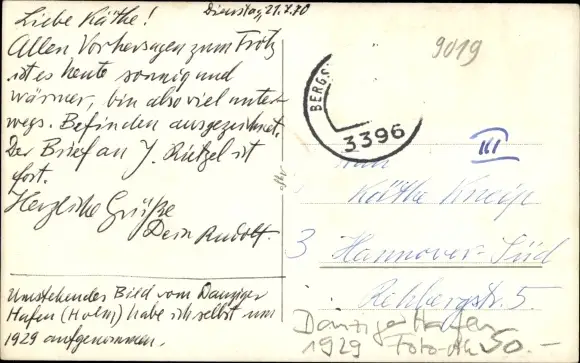 Dienstag, 21.7.70
Liebe Käthe!
Allen Vorhersagen zum Trotz
ist es heute sonnig und
wärmer, bin also viel unter-
wegs. Befinden ausgezeichnet.
Der Brief an J. Rützel ist
fort.
Herzliche Grüße
Dein Rudolf.
Umstehendes Bild vom Danziger
Hafen (Holm) habe ich selbst um
1929 aufgenommen.
9019
BERGS
3396
III
Käthe Kneip
3 Hannover-Süd
Rehbergstr. 5
Danziger Hafen
1929 Foto 50.-